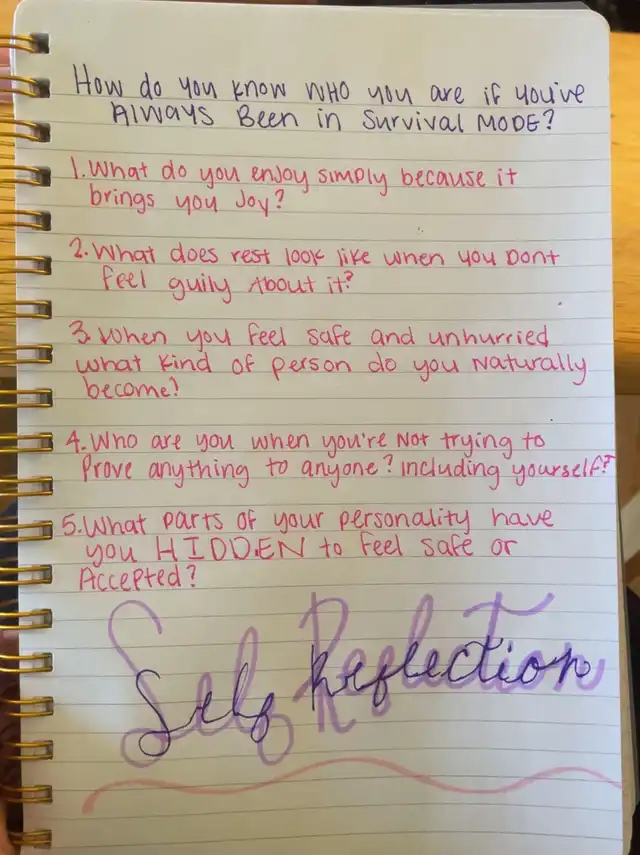 How do you know WHO you are if you've
AlWAYS Been in Survival MODE?
1. What do you enjoy simply because it
brings you Joy?
2. What does rest look like when you Dont
feel guily About it?
3. When you feel safe and unhurried
what kind of person do you Naturally
become?
4. Who are you when you're Not trying to
Prove anything to anyone? including yourself?
5. What parts of your personality have
you HIDDEN to feel safe or
Accepted?
Self Reflection